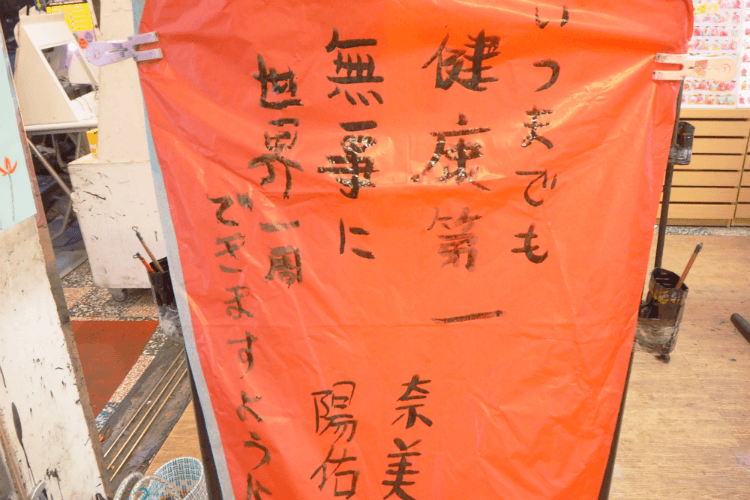 いつまでも
健康第一
無事に
世界一周
できますように
奈美
陽佑